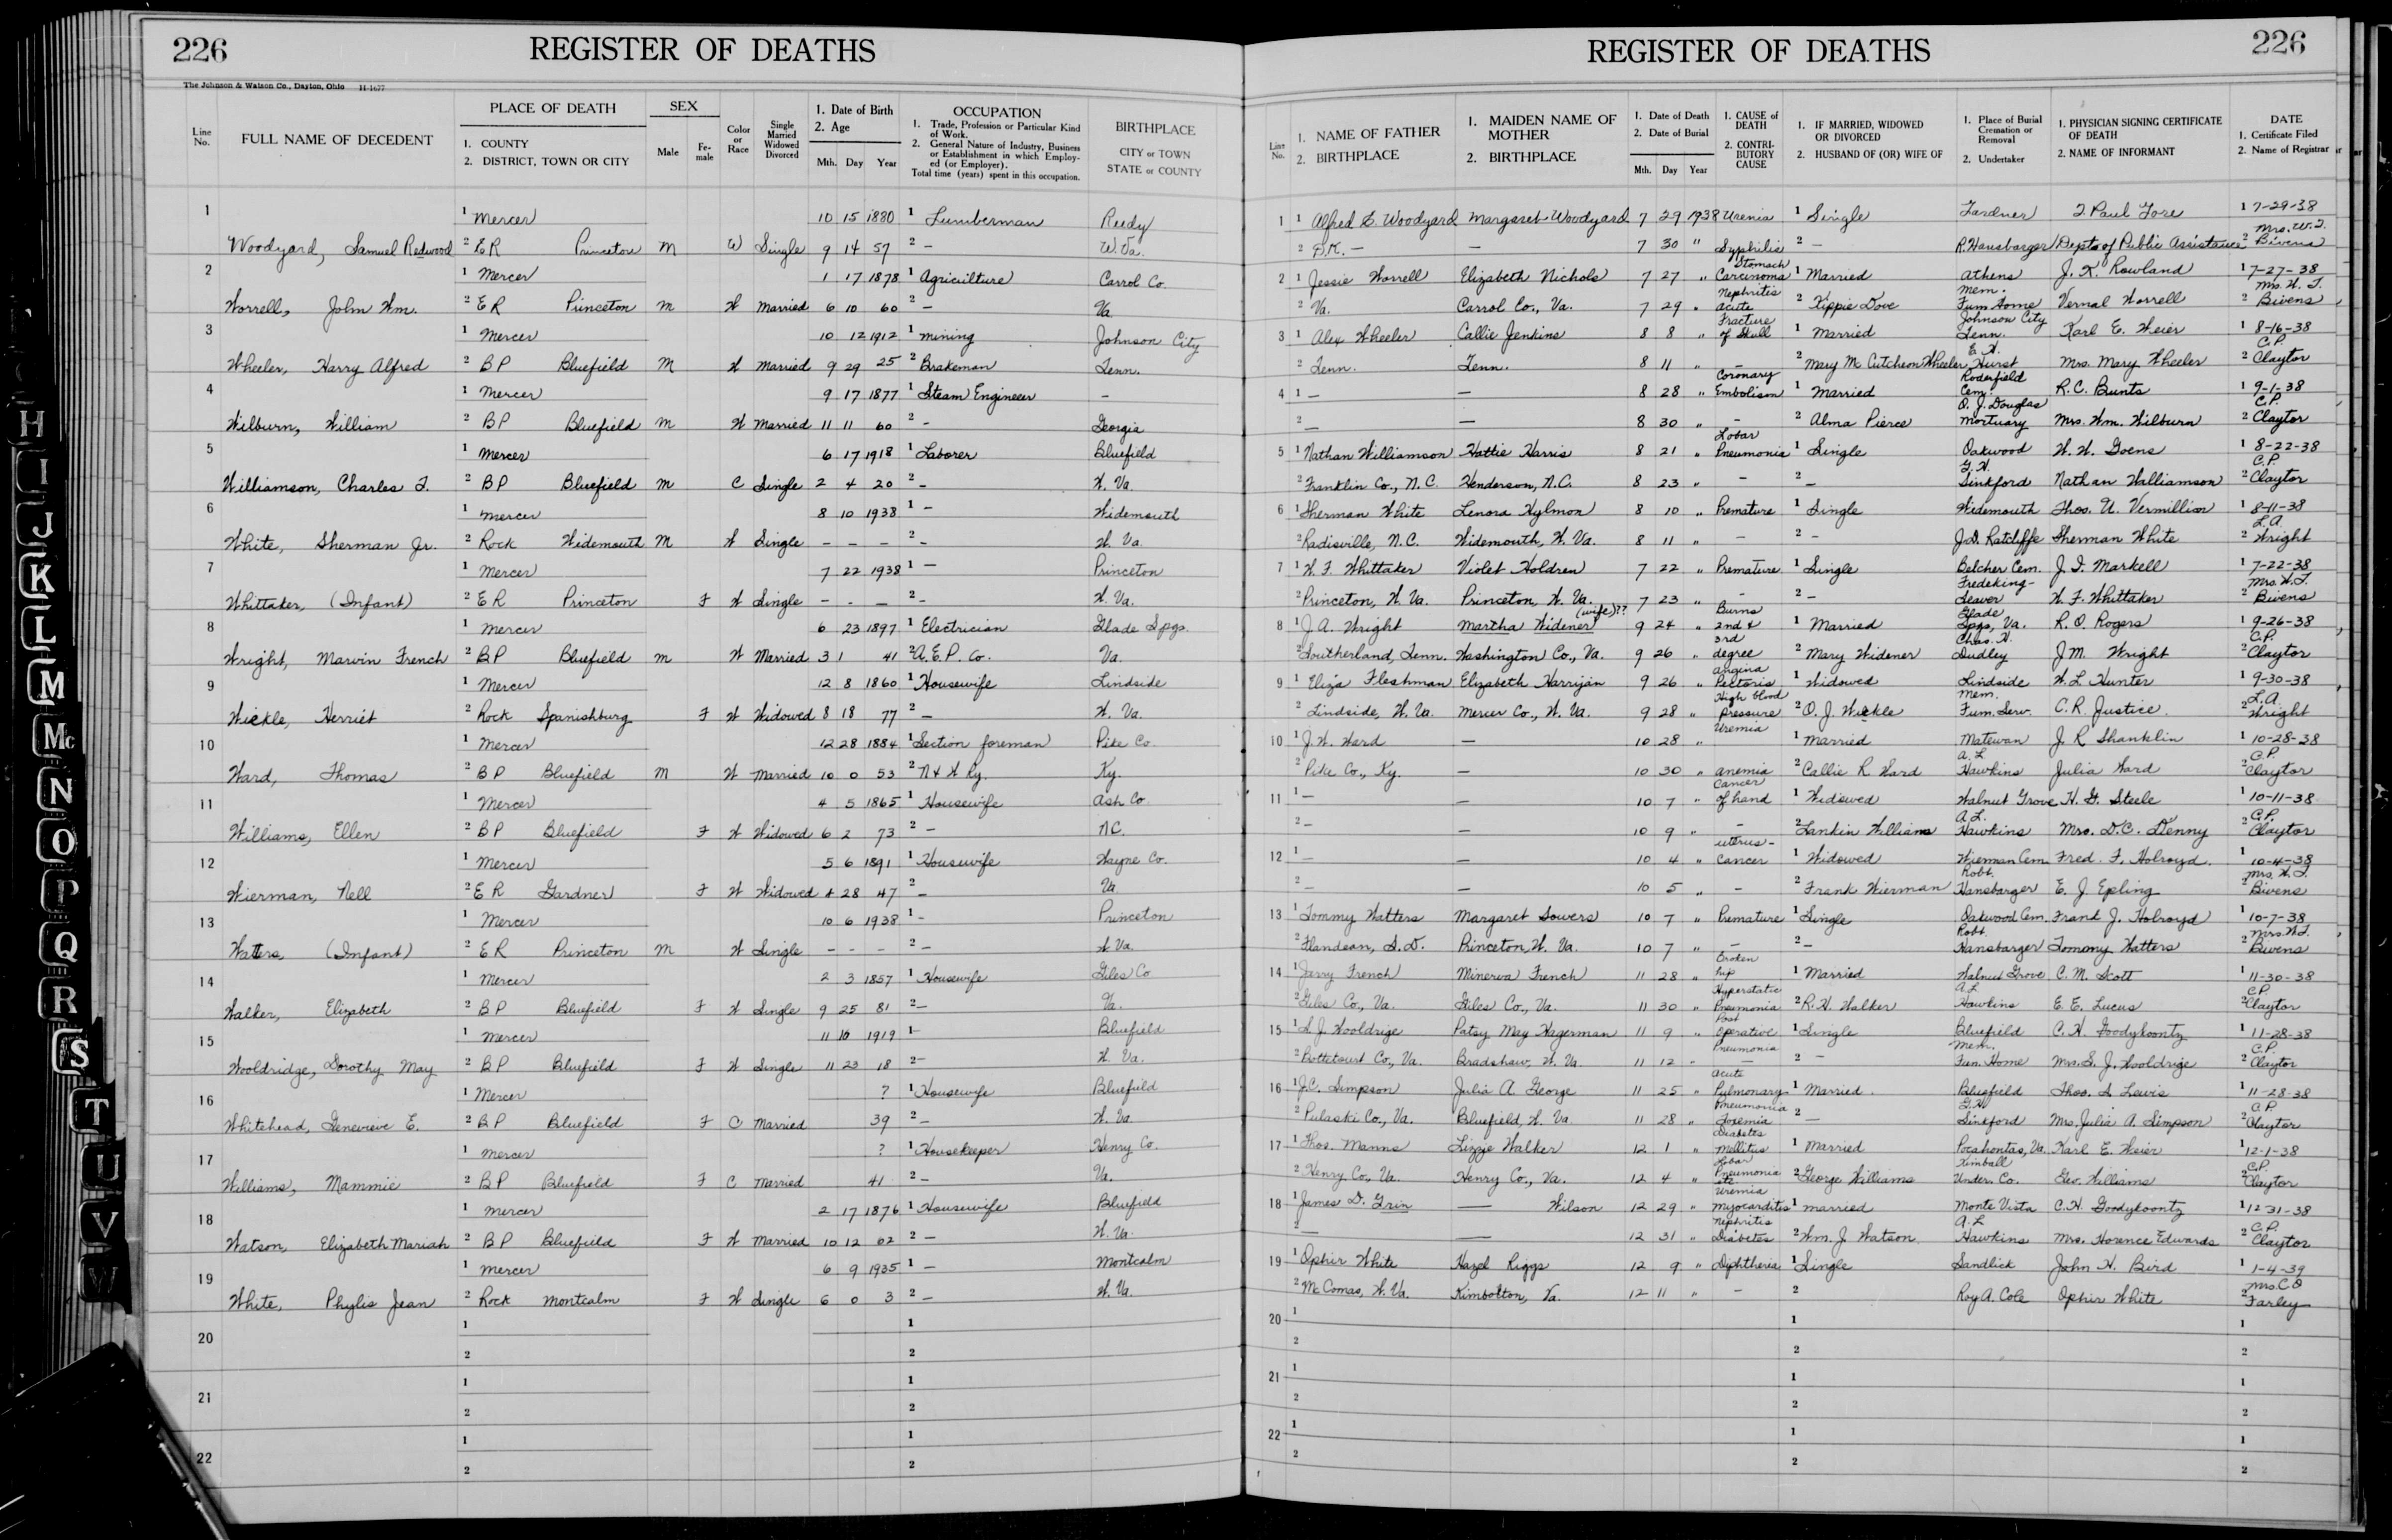 226 REGISTER OF DEATHS
The Johnson & Watson Co., Dayton, Ohio H-1677
Line No. FULL NAME OF DECEDENT PLACE OF DEATH 1. COUNTY 2. DISTRICT, TOWN OR CITY SEX Male Female Color or Race Single Married Widowed Divorced 1. Date of Birth 2. Age Mth. Day Year OCCUPATION 1. Trade, Profession or Particular Kind of Work. 2. General Nature of Industry, Business or Establishment in which Employed (or Employer). Total time (years) spent in this occupation. BIRTHPLACE CITY or TOWN STATE or COUNTY
1 1 Mercer 10 15 1880 1 Lumberman Reedy
Woodyard, Samuel Redwood 2 E R Princeton M W Single 9 14 57 2 – W. Va.
2 1 Mercer 1 17 1878 1 Agriculture Carrol Co.
Worrell, John Wm. 2 E R Princeton M W Married 6 10 60 2 – Va.
3 1 Mercer 10 12 1912 1 Mining Johnson City
Wheeler, Harry Alfred 2 B P Bluefield M W Married 9 29 25 2 Brakeman Tenn.
4 1 Mercer 9 17 1877 1 Steam Engineer –
Wilburn, William 2 B P Bluefield M W Married 11 11 60 2 – Georgia
5 1 Mercer 6 17 1918 1 Laborer Bluefield
Williamson, Charles T. 2 B P Bluefield M C Single 2 4 20 2 – W. Va.
6 1 Mercer 8 10 1938 1 – Widemouth
White, Sherman Jr. 2 Rock Widemouth M W Single – – – 2 – W. Va.
7 1 Mercer 7 22 1938 1 – Princeton
Whittaker, (Infant) 2 E R Princeton F W Single – – – 2 – W. Va.
8 1 Mercer 6 23 1897 1 Electrician Glade Spgs.
Wright, Marvin French 2 B P Bluefield M W Married 3 1 41 2 A. E. P. Co. Va.
9 1 Mercer 12 8 1860 1 Housewife Lindside
Wickle, Herriet 2 Rock Spanishburg F W Widowed 8 18 77 2 – W. Va.
10 1 Mercer 12 28 1884 1 Section foreman Pike Co.
Ward, Thomas 2 B P Bluefield M W Married 10 0 53 2 N & W Ry. Ky.
11 1 Mercer 4 5 1865 1 Housewife Ash Co.
Williams, Ellen 2 B P Bluefield F W Widowed 6 2 73 2 – N.C.
12 1 Mercer 5 6 1891 1 Housewife Wayne Co.
Wierman, Nell 2 E R Gardner F W Widowed 4 28 47 2 – Va.
13 1 Mercer 10 6 1938 1 – Princeton
Watters, (Infant) 2 E R Princeton M W Single – – – 2 – W Va.
14 1 Mercer 2 3 1857 1 Housewife Giles Co
Walker, Elizabeth 2 B P Bluefield F W Single 9 25 81 2 – Va.
15 1 Mercer 11 16 1919 1 – Bluefield
Wooldridge, Dorothy May 2 B P Bluefield F W Single 11 23 18 2 – W. Va.
16 1 Mercer ? 1 Housewife Bluefield
Whitehead, Genevieve E. 2 B P Bluefield F C Married 39 2 – W. Va.
17 1 Mercer ? 1 Housekeeper Henry Co.
Williams, Mammie 2 B P Bluefield F C Married 41 2 – Va.
18 1 Mercer 2 17 1876 1 Housewife Bluefield
Watson, Elizabeth Mariah 2 B P Bluefield F W Married 10 12 62 2 – W. Va.
19 1 Mercer 6 9 1935 1 – Montcalm
White, Phylis Jean 2 Rock Montcalm F W Single 6 0 3 2 – W. Va.
20 1 1
2 2
21 1 1
2 2
22 1 1
2 2
REGISTER OF DEATHS 226
Line No. 1. NAME OF FATHER 2. BIRTHPLACE 1. MAIDEN NAME OF MOTHER 2. BIRTHPLACE 1. Date of Death 2. Date of Burial Mth. Day Year 1. CAUSE of DEATH 2. CONTRIBUTORY CAUSE 1. IF MARRIED, WIDOWED OR DIVORCED 2. HUSBAND OF (OR) WIFE OF 1. Place of Burial Cremation or Removal 2. Undertaker 1. PHYSICIAN SIGNING CERTIFICATE OF DEATH 2. NAME OF INFORMANT DATE 1. Certificate Filed 2. Name of Registrar
1 1 Alfred S. Woodyard Margaret Woodyard 7 29 1938 Uremia 1 Single Gardner I. Paul Fore 1 7-29-38
2 D.K. – – 7 30 " Syphilis 2 – R. Hansbarger Depts of Public Assistance 2 Mrs. W.T. Bivens
2 1 Jessie Worrell Elizabeth Nichols 7 27 " Stomach Carcinoma 1 Married Athens J. K. Rowland 1 7-27-38
2 Va. Carrol Co., Va. 7 29 " Nephritis acute 2 Kippie Dove Mem. Fum. Home Vernal Worrell 2 Mrs. W. T. Bivens
3 1 Alex Wheeler Callie Jenkins 8 8 " Fracture of Skull 1 Married Johnson City Tenn. Karl E. Weier 1 8-16-38
2 Tenn. Tenn. 8 11 " – 2 Mary McCutcheon Wheeler E. H. Hurst Mrs. Mary Wheeler 2 C.P. Claytor
4 1 – – 8 28 " Coronary Embolism 1 Married Roderfield Cem. R. C. Bunts 1 9-1-38
2 – – 8 30 " – 2 Alma Pierce O. J. Douglas Mortuary Mrs. Wm. Wilburn 2 C.P. Claytor
5 1 Nathan Williamson Hattie Harris 8 21 " Lobar Pneumonia 1 Single Oakwood W. W. Goens 1 8-22-38
2 Franklin Co., N.C. Henderson, N.C. 8 23 " – 2 – G. H. Sinkford Nathan Walliamson 2 C.P. Claytor
6 1 Sherman White Lenora Hylmon 8 10 " Premature 1 Single Widemouth Thos. U. Vermillion 1 8-11-38
2 Radisville, N.C. Widemouth, W. Va. 8 11 " – 2 – J.D. Ratcliffe Sherman White 2 L.A. Wright
7 1 W. F. Whittaker Violet Holdren 7 22 " Premature 1 Single Belcher Cem. J. I. Markell 1 7-22-38
2 Princeton, W. Va. Princeton, W. Va. 7 23 " – 2 – Fredeking-Seaver W. F. Whittaker 2 Mrs. W.T. Bivens
8 1 J. A. Wright Martha Widener (wife)?? 9 24 " Burns 2nd & 3rd 1 Married Glade Spgs, Va. R. O. Rogers 1 9-26-38
2 Southerland, Tenn. Washington Co., Va. 9 26 " degree 2 Mary Widener Chas. H. Dudley J M. Wright 2 C.P. Claytor
9 1 Eliza Fleshman Elizabeth Harrijan 9 26 " Angina Pectoris 1 Widowed Lindside W. L. Hunter 1 9-30-38
2 Lindside, W. Va. Mercer Co., W. Va. 9 28 " High blood pressure 2 O. J. Wickle Mem. Fum. Serv. C. R. Justice 2 L.A. Wright
10 1 J. W. Ward – 10 28 " Uremia 1 Married Matewan J. R Shanklin 1 10-28-38
2 Pike Co., Ky. – 10 30 " anemia 2 Callie R Ward A. L. Hawkins Julia Ward 2 C.P. Claytor
11 1 – – 10 7 " Cancer of hand 1 Widowed Walnut Grove H. G. Steele 1 10-11-38
2 – – 10 9 " – 2 Lankin Williams A.L. Hawkins Mrs. D.C. Denny 2 C.P. Claytor
12 1 – – 10 4 " uterus- Cancer 1 Widowed Wieman Cem. Fred. F. Holroyd. 1 10-4-38
2 – – 10 5 " – 2 Frank Wierman Robt. Hansbarger E. J. Epling 2 Mrs. W.T. Bivens
13 1 Tommy Watters Margaret Sowers 10 7 " Premature 1 Single Oakwood Cem. Frank J. Holroyd 1 10-7-38
2 Flandean, S.D. Princeton, W. Va. 10 7 " – 2 – Robt. Hansbarger Tommy Watters 2 Mrs. W.T. Bivens
14 1 Jerry French Minerva French 11 28 " Broken hip 1 Married Walnut Grove C. M. Scott 1 11-30-38
2 Giles Co., Va. Giles Co., Va. 11 30 " Hyperstatic Pneumonia 2 R. H. Walker A.L. Hawkins E. E. Lucus 2 C.P. Claytor
15 1 S. J. Wooldrige Patsy May Hagerman 11 9 " Post Operative Pneumonia 1 Single Bluefield C. H. Goodykoontz 1 11-28-38
2 Bottetourt Co., Va. Bradshaw, W. Va. 11 12 " – 2 – Mem. Fun. Home Mrs. S. J. Wooldrige 2 C.P. Claytor
16 1 J.C. Simpson Julia A. George 11 25 " Acute Pulmonary Pneumonia 1 Married Bluefield Thos. S Lewis 1 11-28-38
2 Pulaski Co., Va. Bluefield, W. Va. 11 28 " Toxemia 2 – G.H. Sinkford Mrs. Julia A. Simpson 2 C.P. Claytor
17 1 Thos. Manns Lizzie Walker 12 1 " Diabetes Mellitus 1 Married Pocahontas, Va. Karl E. Weier 1 12-1-38
2 Henry Co., Va. Henry Co., Va. 12 4 " Lobar Pneumonia 2 George Williams Kimball Under. Co. Geo. Williams 2 C.P. Claytor
18 1 James D. Grin – Wilson 12 29 " Uremia myocarditis 1 Married Monte Vista C. H. Goodykoontz 1 12-31-38
2 – – 12 31 " nephritis Diabetes 2 Wm. J Watson A.L. Hawkins Mrs. Florence Edwards 2 C.P. Claytor
19 1 Ophir White Hazel Riggs 12 9 " Diphtheria 1 Single Sandlick John H. Bird 1 1-4-39
2 McComas, W. Va. Kimbolton, Va. 12 11 " – 2 Roy A. Cole Ophir White 2 Mrs C O Farley
20 1 1 1
2 2 2
21 1 1 1
2 2 2
22 1 1 1
2 2 2
H
I
J
K
L
M
Mc
N
O
P
Q
R
S
T
U
V
W